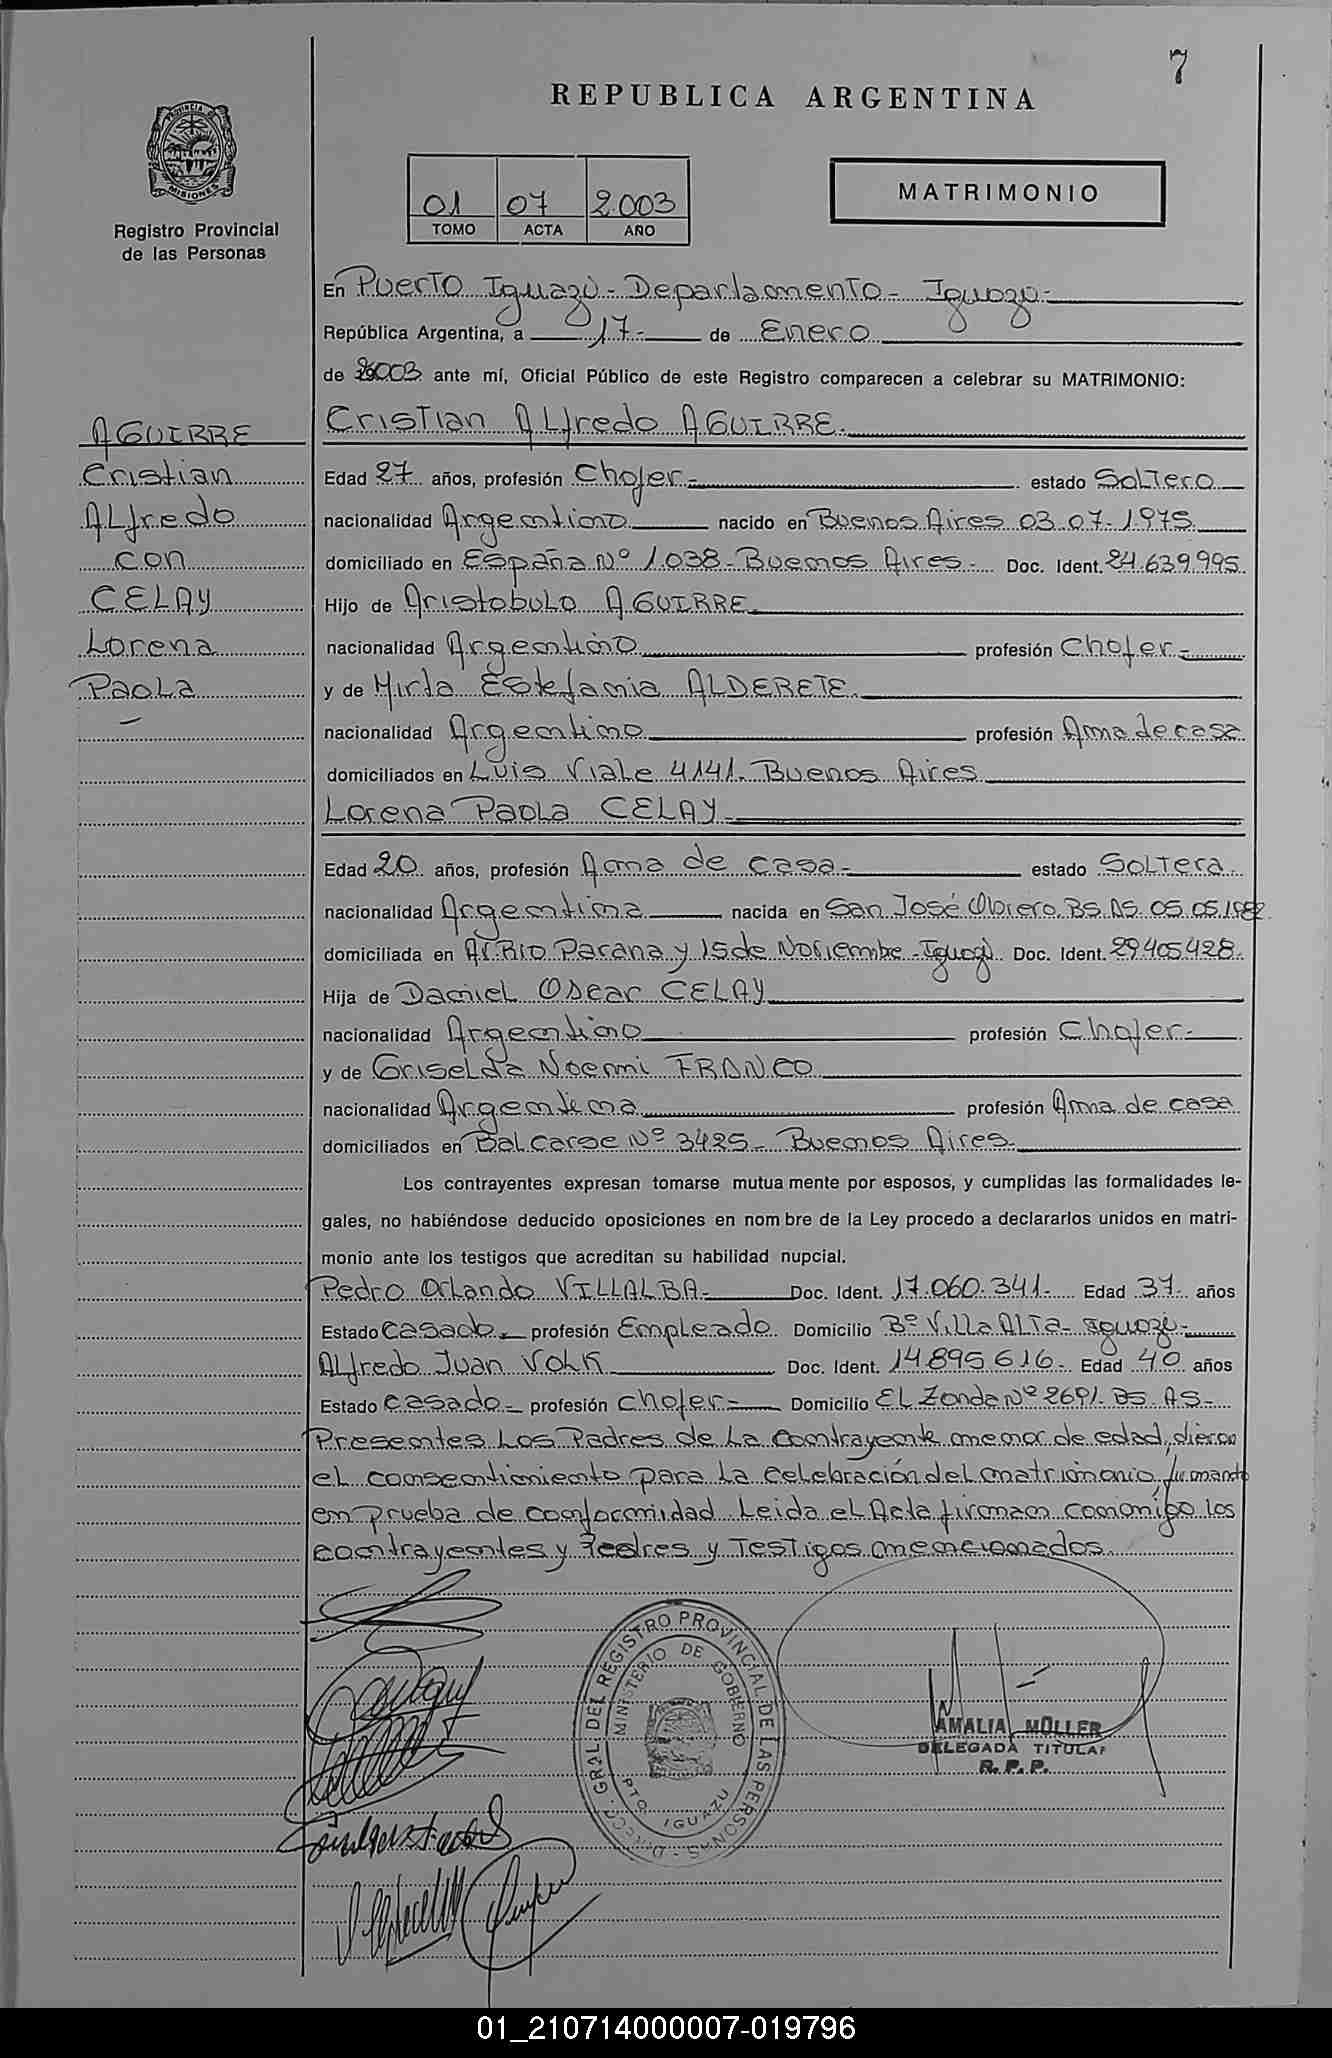 7
REPUBLICA ARGENTINA
PROVINCIA DE MISIONES
Registro Provincial
de las Personas
01 07 2.003
TOMO ACTA AÑO
MATRIMONIO
En Puerto Iguazú - Departamento - Iguazú -
República Argentina, a 17- de Enero
de 2003 ante mí, Oficial Público de este Registro comparecen a celebrar su MATRIMONIO:
AGUIRRE
Cristian
ALfredo
con
CELAY
Lorena
Paola
Cristian ALfredo AGUIRRE.
Edad 27 años, profesión Chofer- estado SoLTero
nacionalidad Argentino nacido en Buenos Aires 03.07.1.975
domiciliado en España Nº 1.038- Buenos Aires- Doc. Ident. 24.639.995
Hijo de AristobuLo AGUIRRE
nacionalidad Argentino profesión Chofer-
y de Mirta Estefania ALDERETE.
nacionalidad Argentino profesión Ama de casa
domiciliados en Luis Viale 4141- Buenos Aires
Lorena Paola CELAY
Edad 20 años, profesión Ama de casa- estado SoLTera
nacionalidad Argentina nacida en San José Obrero. BS. AS. 05.05.1982
domiciliada en Av. Rio Parana y 15 de Noviembre - Iguazú Doc. Ident. 29.405.428.
Hija de DanieL Oscar CELAY
nacionalidad Argentino profesión Chofer-
y de GriseLda Noemi FRANCO
nacionalidad Argentina profesión Ama de casa
domiciliados en BaLcarse Nº 3425- Buenos Aires.
Los contrayentes expresan tomarse mutua mente por esposos, y cumplidas las formalidades le-
gales, no habiéndose deducido oposiciones en nom bre de la Ley procedo a declararlos unidos en matri-
monio ante los testigos que acreditan su habilidad nupcial.
Pedro OrLando VILLALBA- Doc. Ident. 17.060.341- Edad 37- años
Estado Casado- profesión Empleado Domicilio Bº ViLLa ALTa- Iguazú-
ALfredo Juan VOLK Doc. Ident. 14.895.616- Edad 40 años
Estado Casado- profesión Chofer- Domicilio EL Zonda Nº 2691- BS. AS-
Presentes Los Padres de La contrayente menor de edad, dieron
eL consentimiento para La Celebración deL matrimonio, firmando
en prueba de conformidad Leida eL Acta firman conmigo los
contrayentes y Padres y Testigos mencionados.
DIRECC. GRAL DEL REGISTRO PROVINCIAL DE LAS PERSONAS
MINISTERIO DE GOBIERNO
PTO. IGUAZU
AMALIA MÜLLER
DELEGADA TITULAR
R. P. P.
01_210714000007-019796